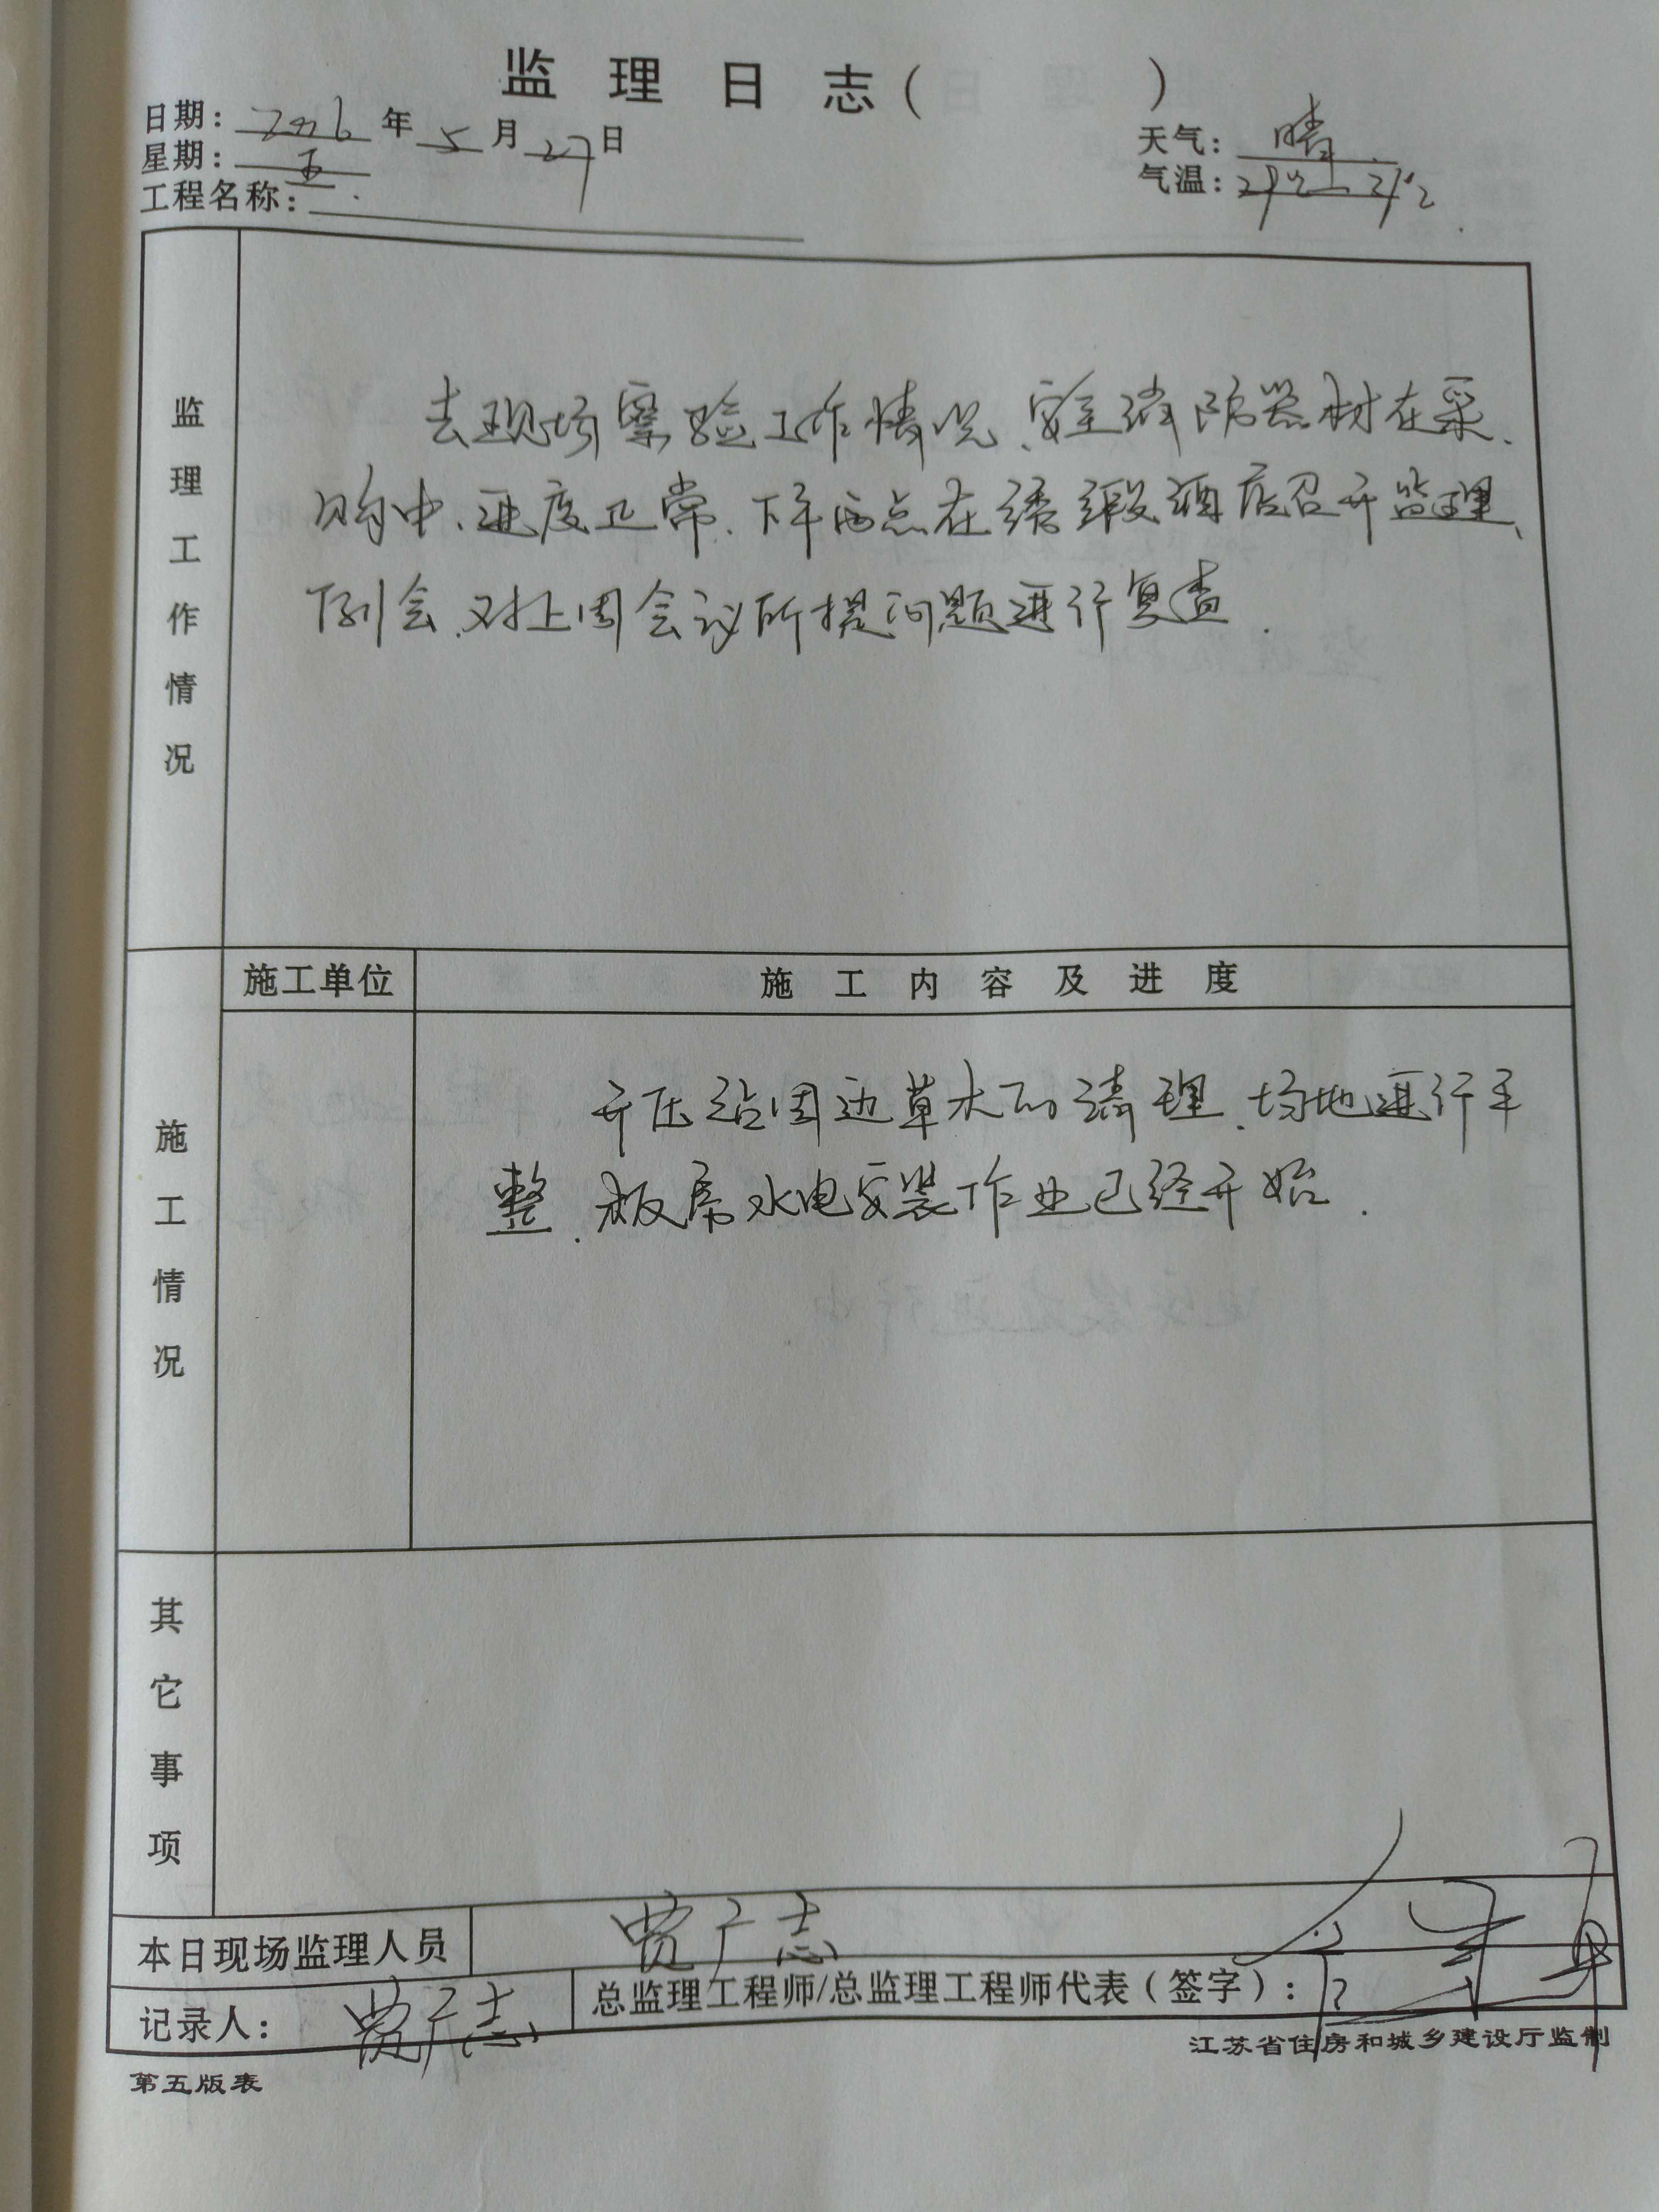 监理日志（ ）
日期：2016年5月27日
天气：晴
星期：五
气温：
工程名称：
监理工作情况
去现场察验工作情况、安全消防器材在采
购中、进度正常、下午两点在绣缎酒店召开监理
例会、对上周会议所提问题进行复查.
施工单位
施工内容及进度
施工情况
开压站周边草木的清理、场地进行平
整、板房水电安装作业已经开始.
其它事项
本日现场监理人员 贾广志
记录人：贾广志 总监理工程师/总监理工程师代表（签字）：
江苏省住房和城乡建设厅监制
第五版表